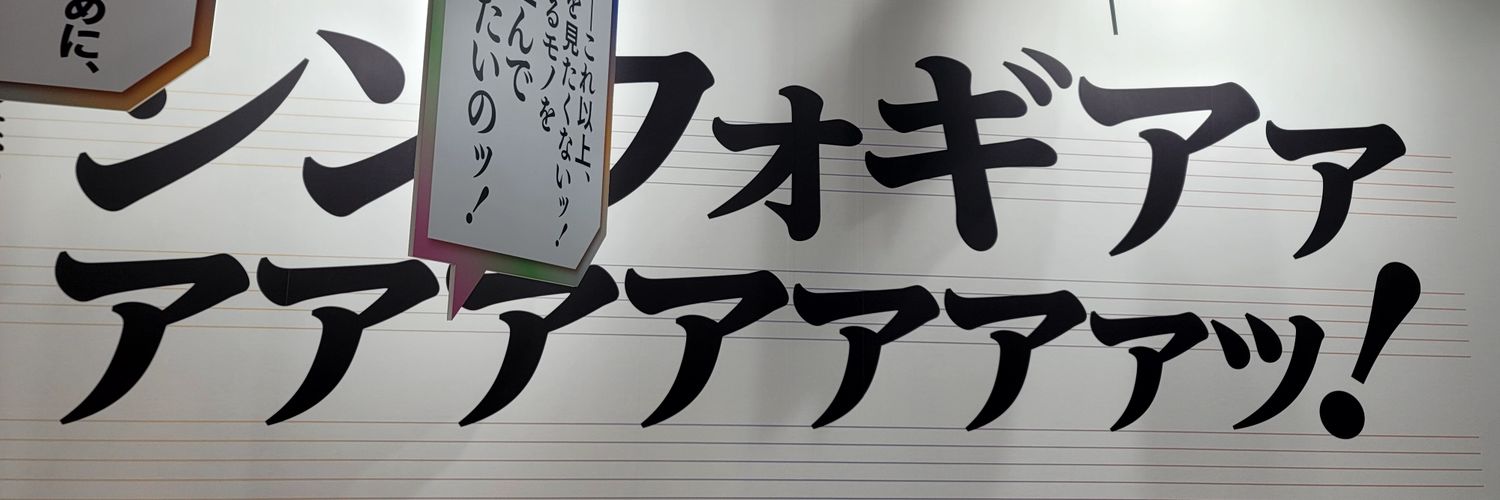 シンフォギアァ
アアアアアアァッ!
これ以上、
を見たくないッ!
るモノを
んで
たいのッ!
めに、